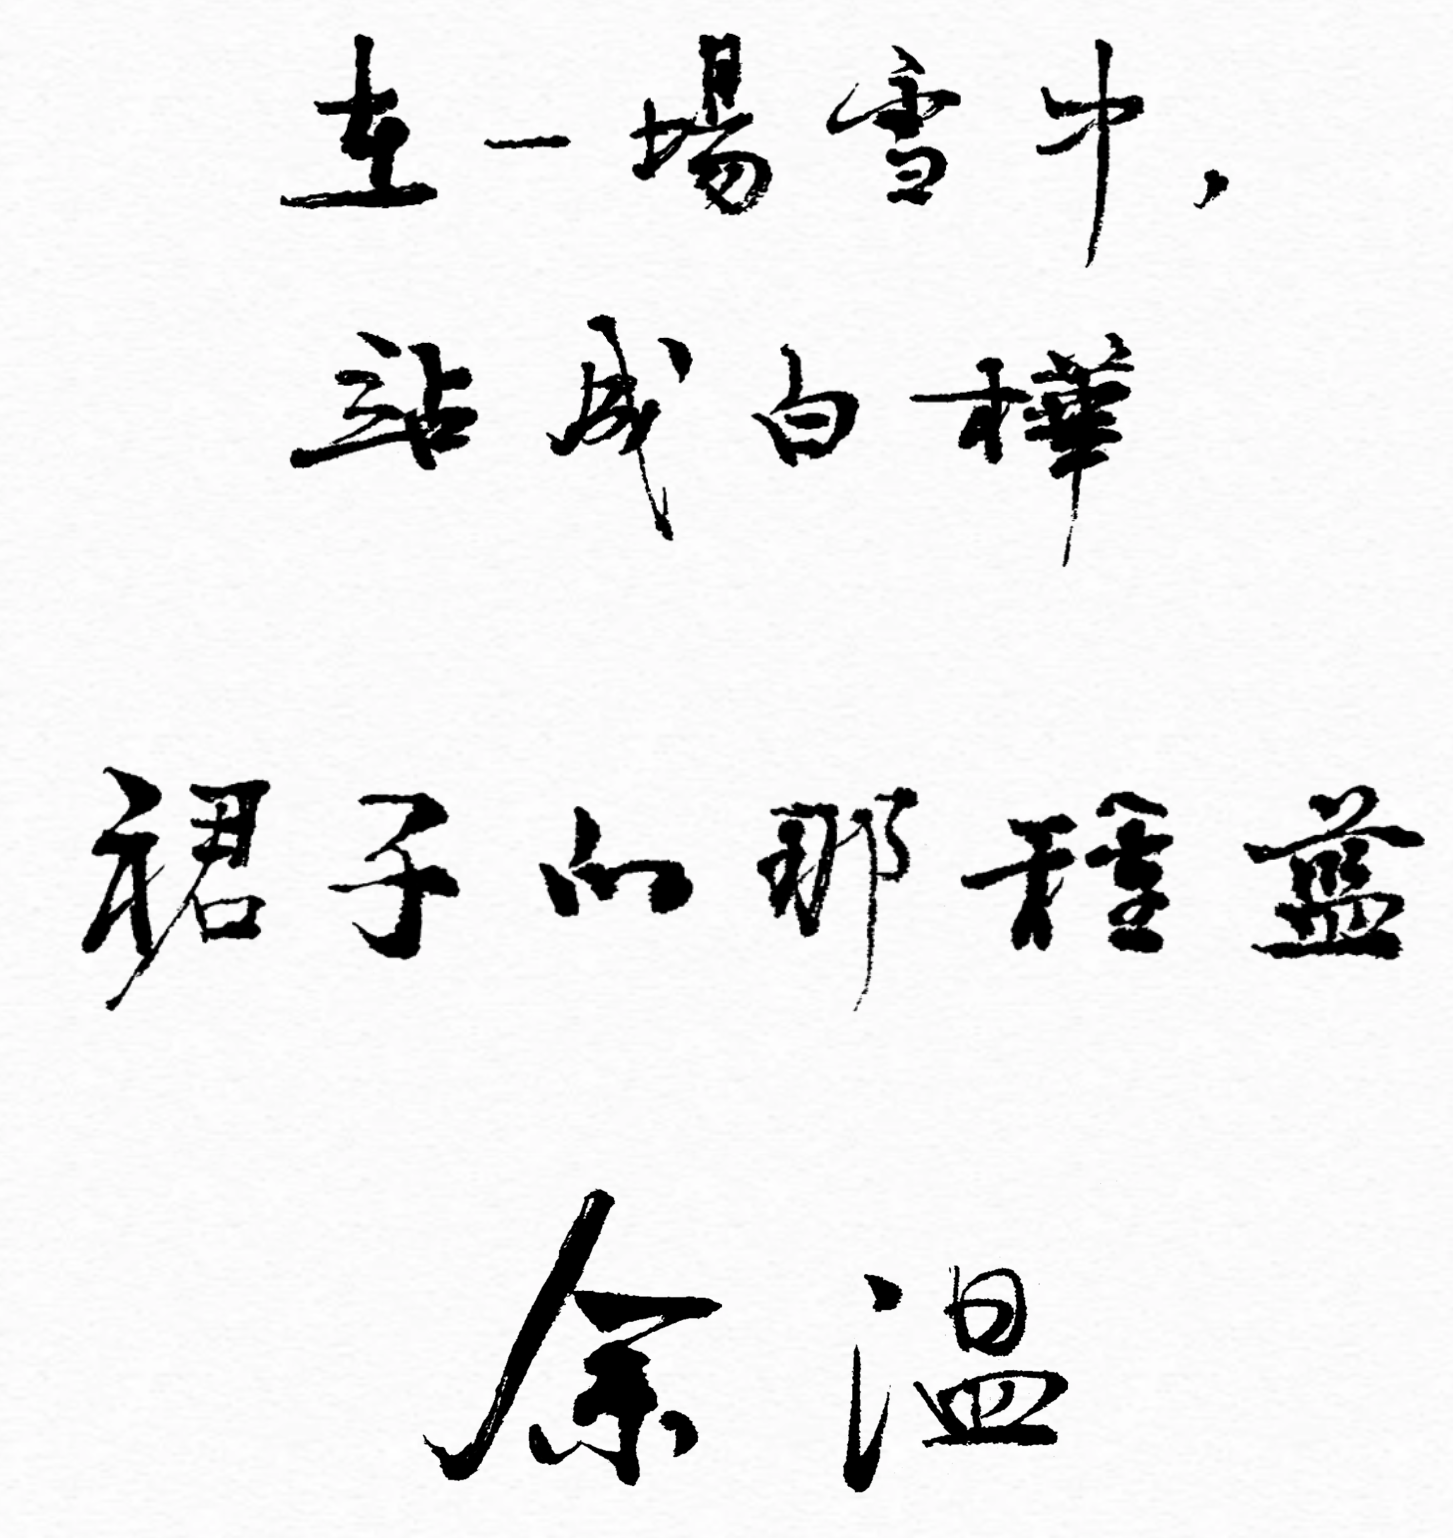 在一場雪中，
站成白樺
裙子的那種藍
余溫